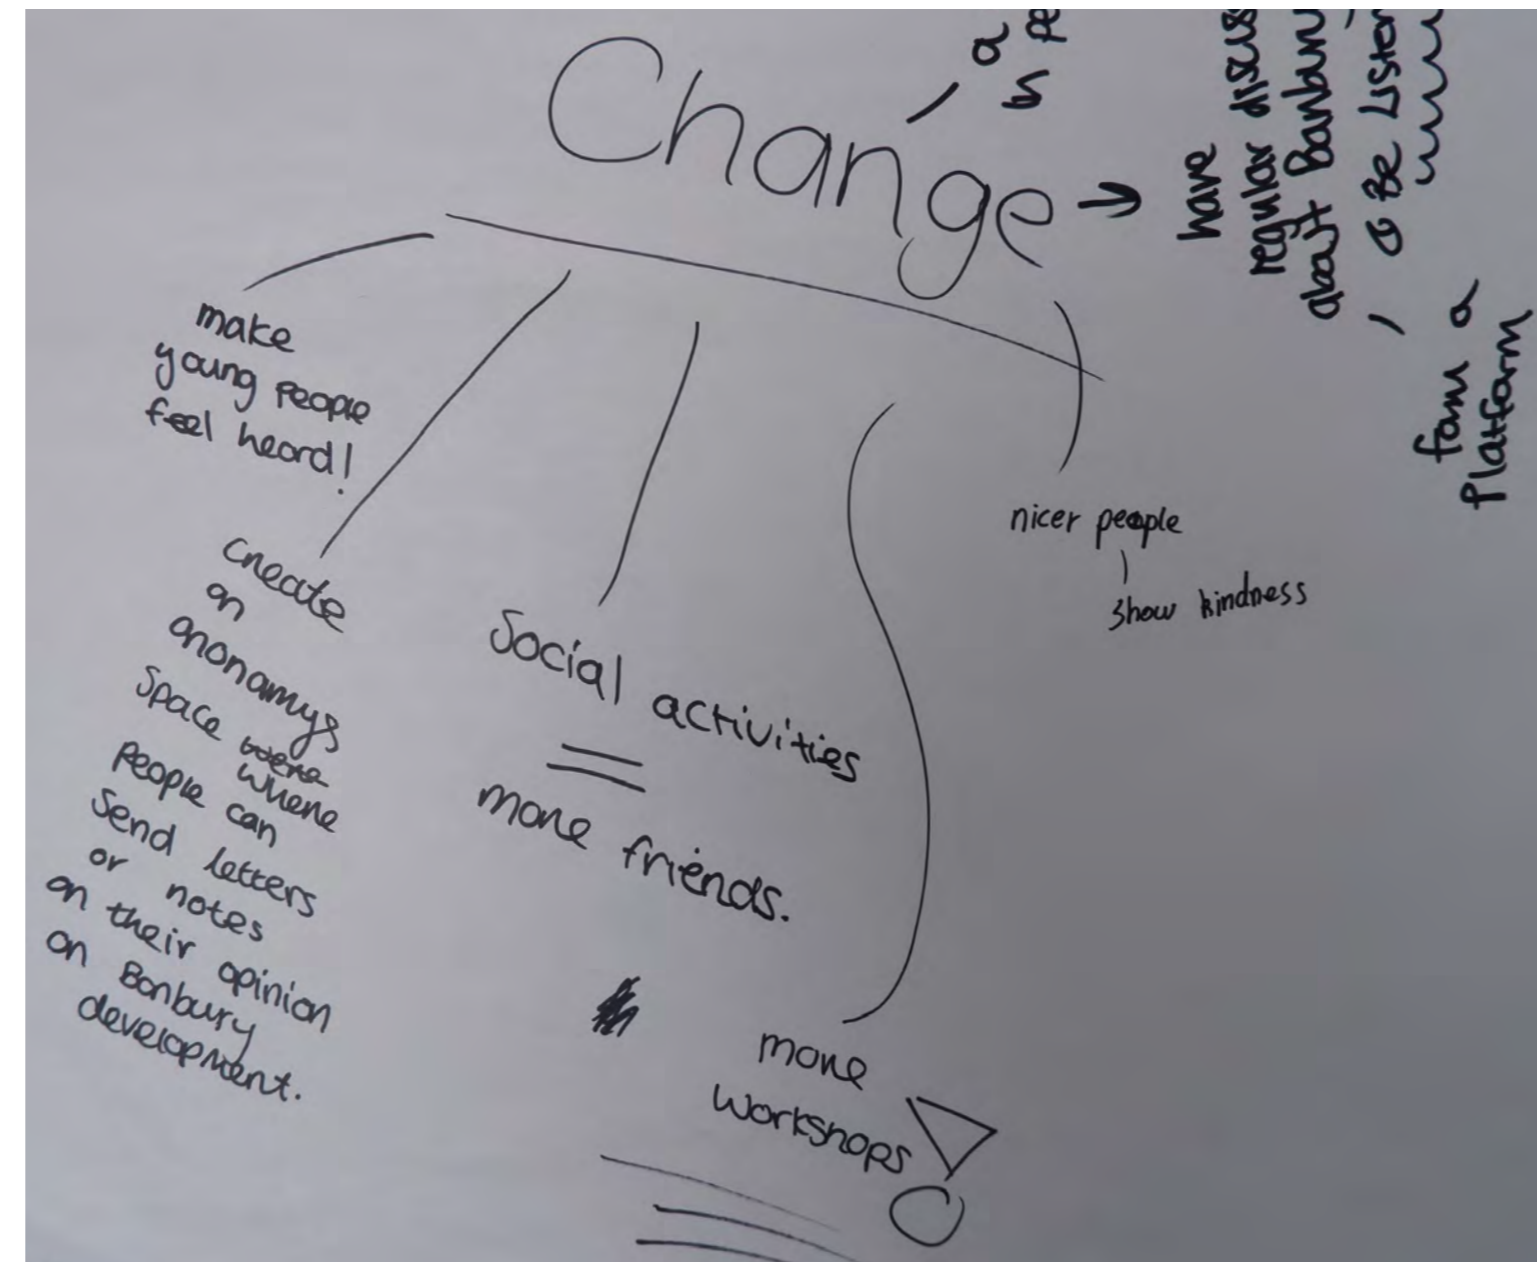 Change
make
young people
feel heard!
create
an
anonamys
space were
where
people can
send letters
or notes
on their opinion
on Banbury
development.
Social activities
=
more friends.
more
workshops
nicer people
show kindness
a
in pe
have
regular discus
about Banbury
Be Listen
form a
Platform